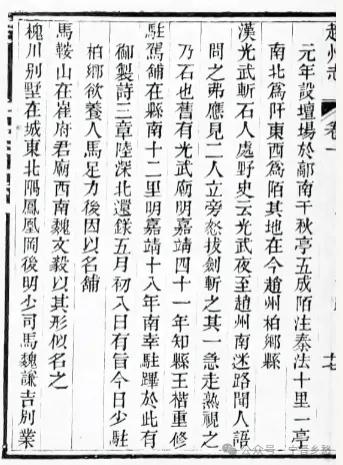 趙州志
卷一
元年設壇場於鄗南千秋亭五成陌注秦法十里一亭
南北爲阡東西爲陌其地在今趙州柏鄉縣
漢光武斬石人處野史云光武夜至趙州南迷路聞人語
問之弗應見二人立旁怒拔劍斬之其一急走熟視之
乃石也舊有光武廟明嘉靖四十一年知縣王楷重修
駐駕舖在縣南十二里明嘉靖十八年南幸駐蹕於此有
御製詩三章陸深北還錄五月初八日有旨今日少駐
柏鄉欲養人馬足力後因以名舖
馬鞍山在崔府君廟西南魏文毅以其形似名之
槐川別墅在城東北隅鳳凰岡後明少司馬魏謙吉別業
公众号